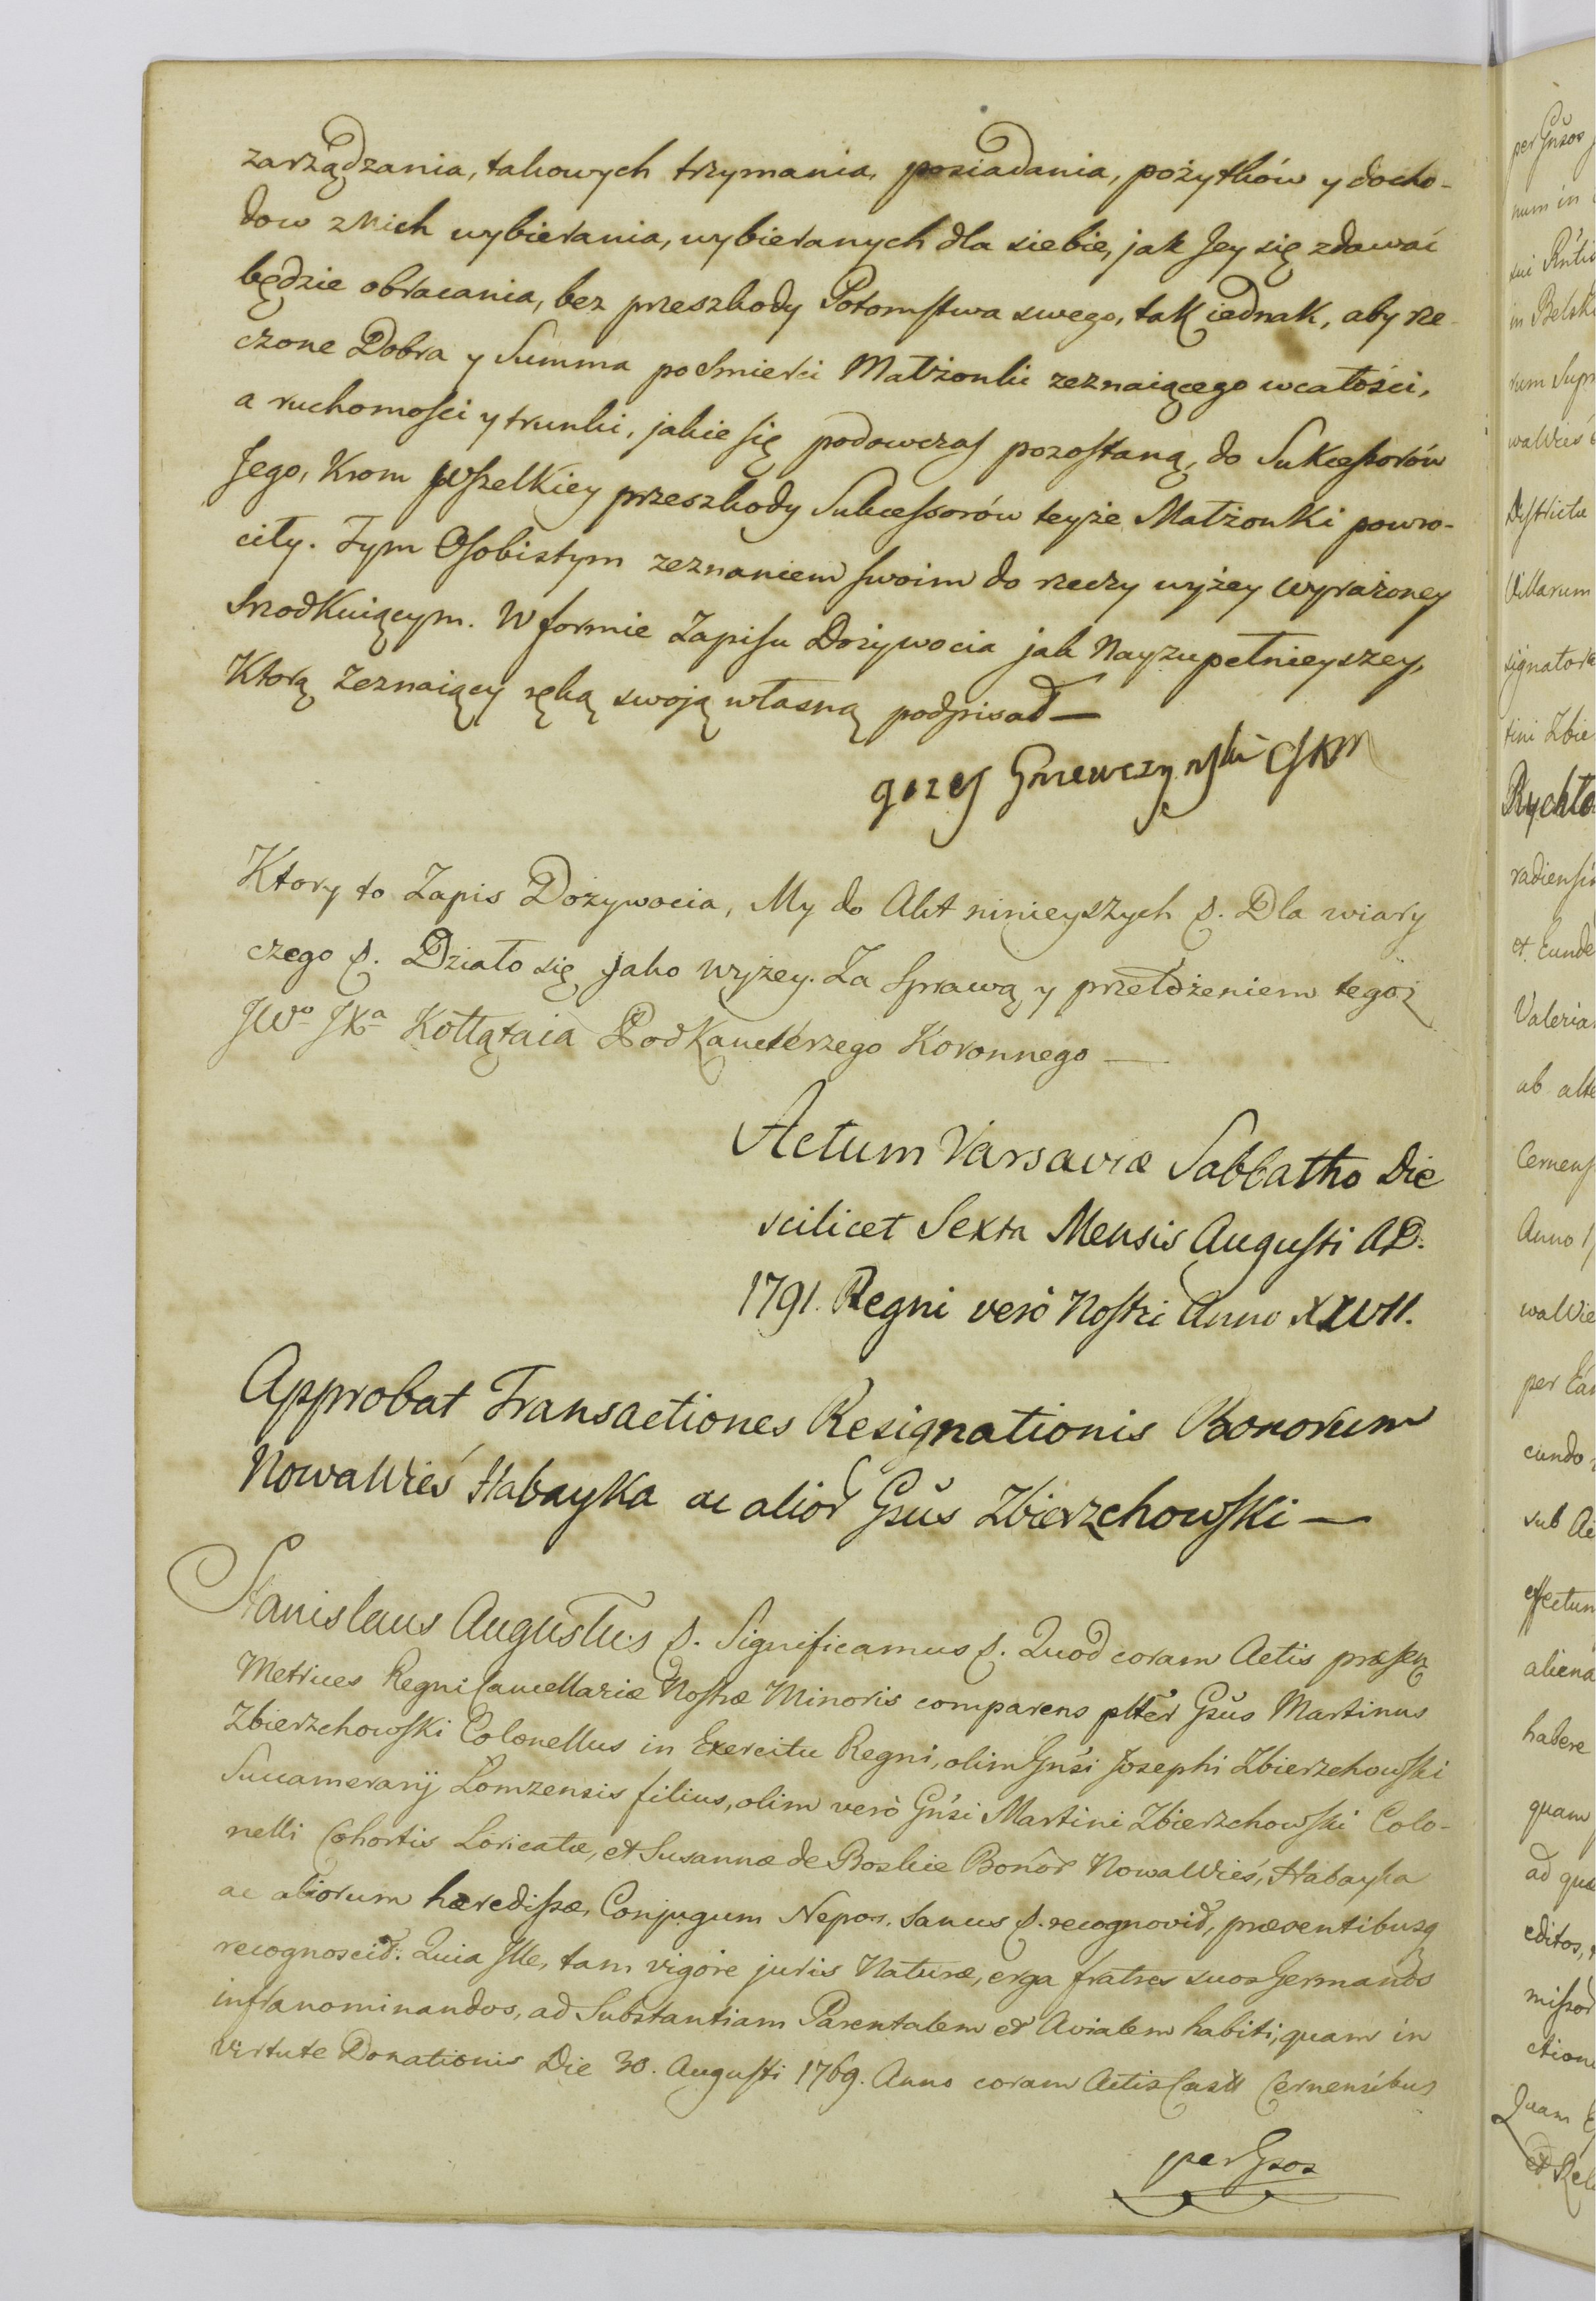 zarządzania, takowych trzymania, posiadania, pożytków y docho-
dow z Nich wybierania, wybieranych dla siebie, jak Jey się zdawać
będzie obracania, bez przeszkody Potomstwa swego, tak iednak, aby rze-
czone Dobra y Summa po Smierci Małżonki zeznaiącego w całości,
a ruchomości y trunki, jakie się podówczas pozostaną, do Sukcessorów
Jego, Krom Wszelkiey przeszkody Sukcessorów teyże Małżonki powró-
ciły. Tym Osobistym zeznaniem swoim do rzeczy wyżey wyrażoney
srzodkuiącym. W formie Zapisu Dożywocia jak Nayzupełnieyszey,
Którą Zeznaiący ręką swoją własną podpisał —
Jozef Gniewczynski
Ktory to Zapis Dożywocia, My do Akt ninieyszych &. Dla wiary
czego &. Działo się jako wyżey. Za Sprawą y przełożeniem tegoż
JWo JXa Kołłątaia Podkanclerzego Koronnego —
Actum Varsaviæ Sabbatho Die
scilicet Sexta Mensis Augusti AD.
1791. Regni verò Nostri Anno XXVII.
Approbat Transactiones Resignationis Bonorum
NowaWieś Habayka ac alior Gsus Zbierzchowski —
Stanislaus Augustus &. Significamus &. Quod coram Actis præsen
Metrices Regni Cancellariæ Nostræ Minoris comparens plter Gsus Martinus
Zbierzchowski Colonellus in Exercitu Regni, olim Gnsi Josephi Zbierzchowski
Succamerarij Łomzensis filius, olim verò Gnsi Martini Zbierzchowski Colo-
nelli Cohortis Loricatæ, et Susannæ de Boskie Bonor NowaWieś, Habayka
ac aliorum hæredissæ, Conjugum Nepos, sanus &. recognovit, præsentibusq
recognoscit. Quia Ille, tam vigore juris Naturæ, erga fratres suos Germanos
infranominandos, ad Substantiam Parentalem et Avialem habiti, quam in
virtute Donationis Die 30. Augusti 1769. Anno coram Actis Castr Cernensibus
per Gsos